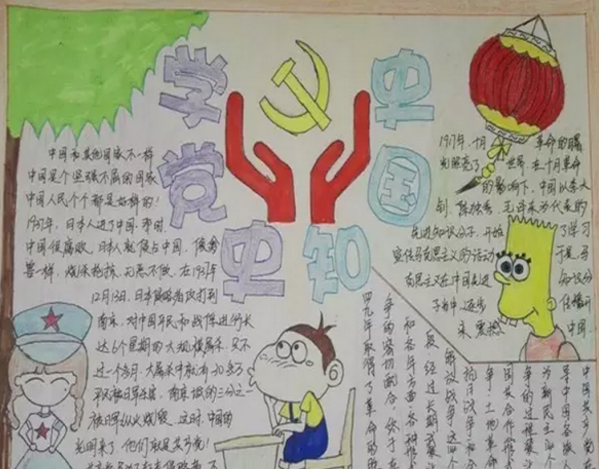 学
党
史
知
国
史
中国和其他国家不一样
中国是个坚强不屈的国家
中国人民个个都是好样的!
1937年,日本人进了中国,那时
中国很腐败,日本人就侵占中国,像禽
兽一样,烧杀抢掠,无恶不做,在1937年
12月13日,日本侵略者攻打到
南京,对中国平民和战俘进行长
达6个星期的大规模屠杀,只不
过一个多月,大屠杀中就有30多万
平民被日军杀害,南京城的三分之一
被日军纵火烧毁,这时,中国的
光明来了,他们就是共产党!
1917年,十月革命的曙
光照亮了世界,在十月革命
的影响下,中国以李大
钊、陈独秀、毛泽东为代表的
先进知识分子,开始了学习
宣传马克思主义的活动,于是,马
克思主义在中国先进知识份
子当中,逐步传播开
来,震撼中国.
导中国各族
为新民主
争的过程
国共合作
争、土地革命
抗日战争和
解放战争这四
段,经过长期武装
和各方面各种形
争的密切配合,终于在
四九年取得了革命的